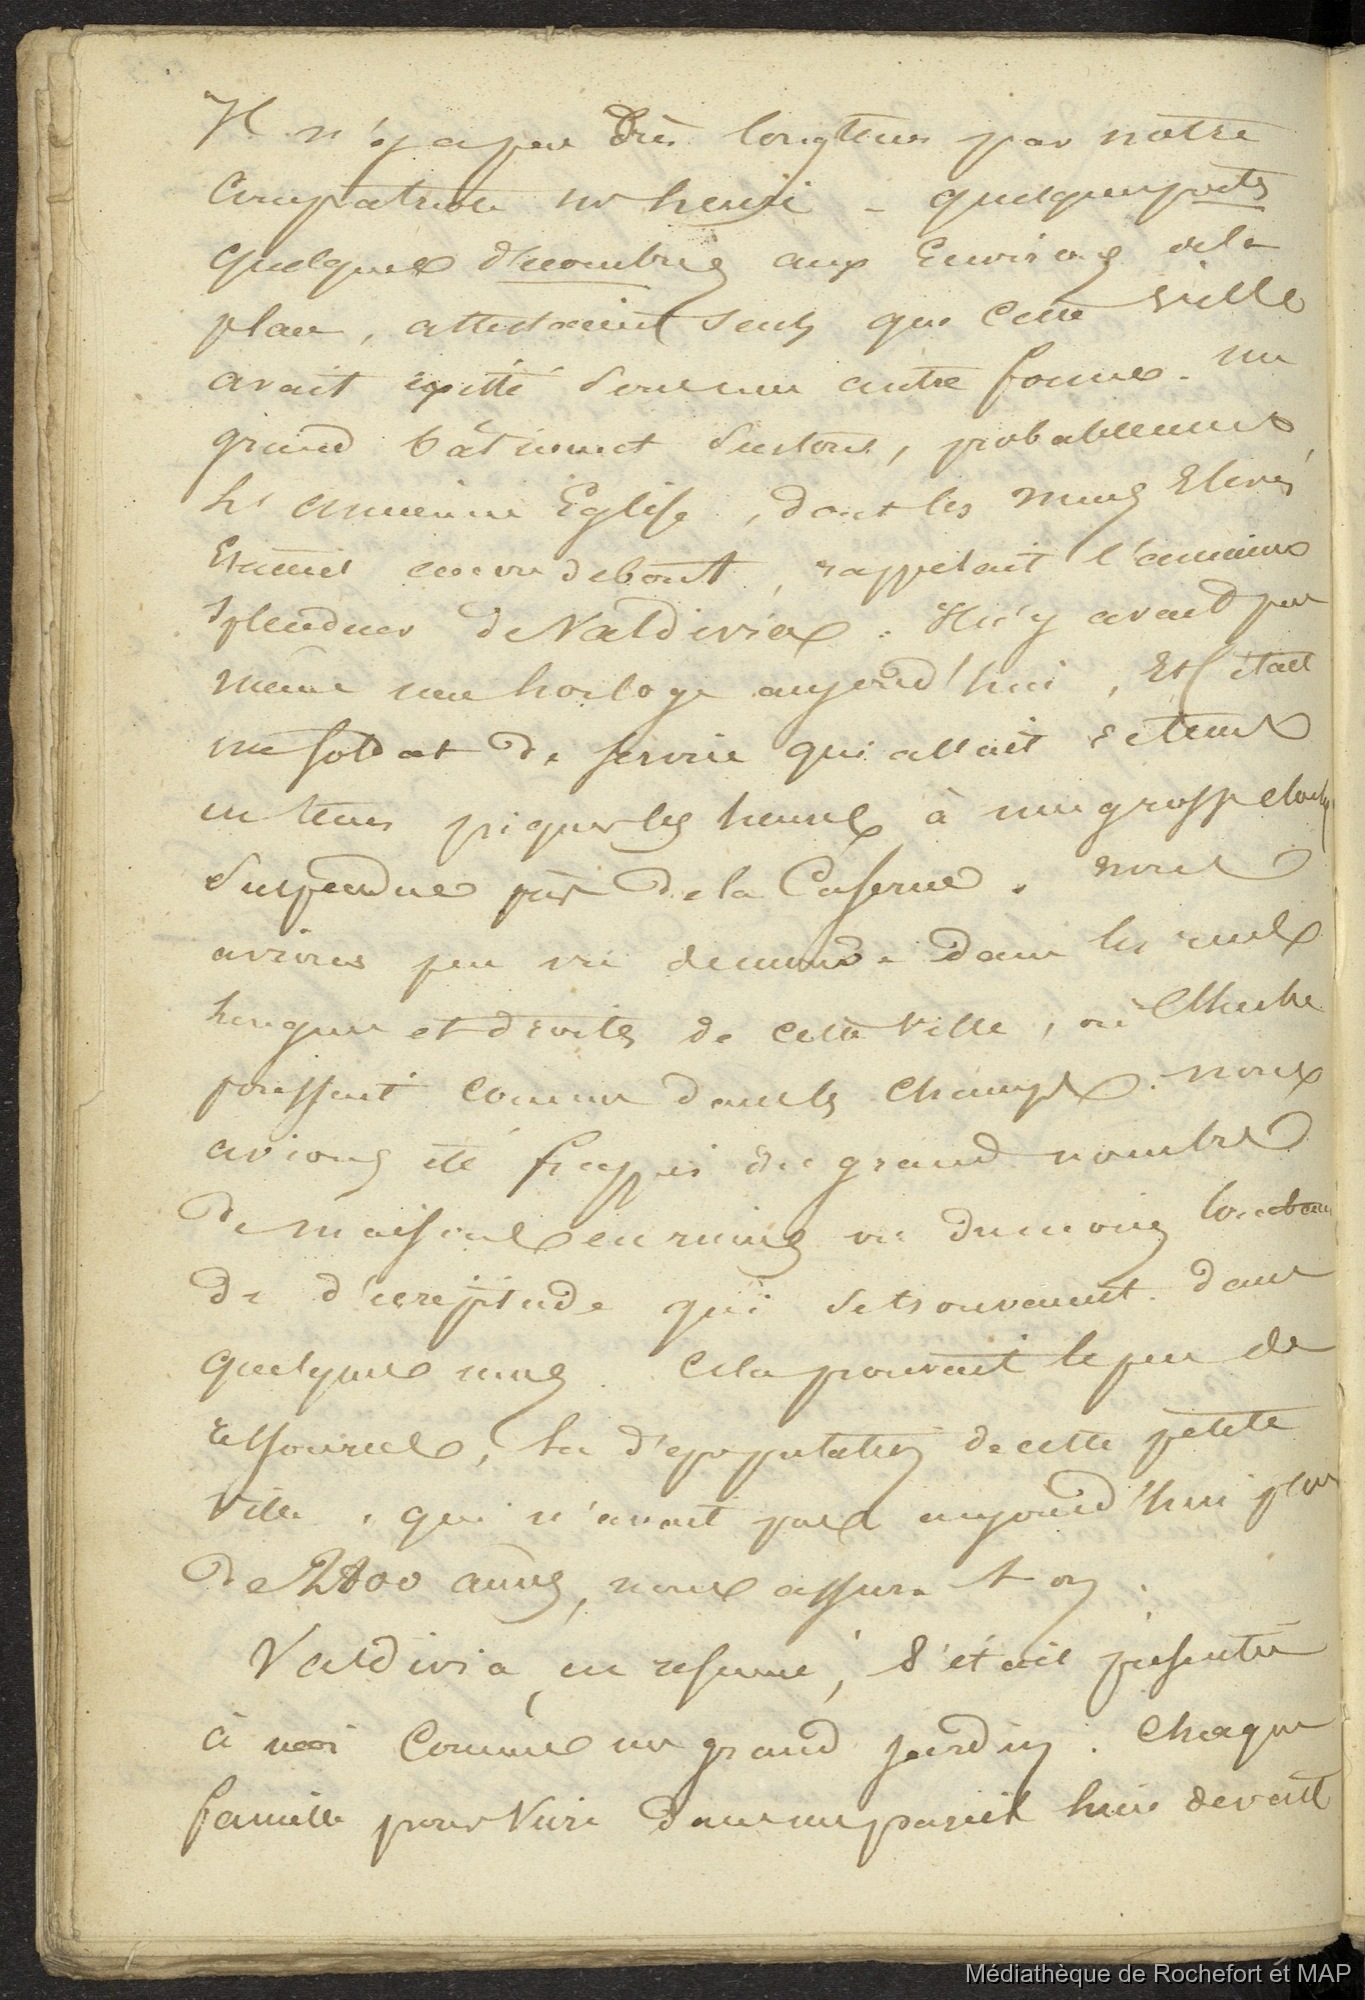 Il n'y a pas très longtems par notre
Compatriote mr henri - quelques ports
quelques décombres aux Environs de la
place, attestaient seuls que Cette Ville
avait existé sous une autre forme. un
grand bâtiment surtout, probablement
la ancienne Eglise, dont les murs Elevés
Etaient encore debout, rappelait l'ancienne
Splendeur de Valdivia. Il n'y avait pas
même une horloge aujourd'hui, Et C'était
un soldat de service qui allait de tems
en tems piquer les heures à une grosse cloche
Suspendue près de la Caserne. nous
avions peu vu de monde dans les rues
longues et droites de cette Ville, où l'herbe
poussent comme dans les champs. nous
avions été frappés du grand nombre
de maisons en ruines ou du moins tombant
de décrépitude qui se trouvaient dans
quelques rues. Cela prouvait le peu de
ressources, la dépopulation de cette petite
Ville, qui n'avait pas aujourd'hui plus
de 2400 âmes, nous assura t-on.
Valdivia, en résumé, s'était présentée
à moi Comme un grand jardin. Chaque
famille pour Vivre dans un pareil lieu devait
Médiathèque de Rochefort et MAP